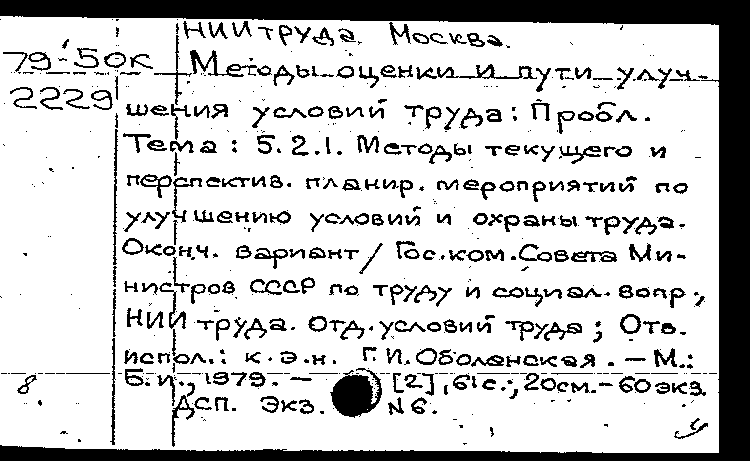 НИИ труда. Москва.
79-50к Методы оценки и пути улуч-
2229 шения условий труда: Пробл.
Тема: 5.2.1. Методы текущего и
перспектив. планир. мероприятий по
улучшению условий и охраны труда.
Оконч. вариант / Гос.ком.Совета Ми-
нистров СССР по труду и социал. вопр.,
НИИ труда. Отд. условий труда; Отв.
испол.: к.э.н. Г.И. Оболенская. — М.:
Б.и., 1979. — [2], 61 с.; 20см. - 60 экз.
8. ДСП. Экз. N6.